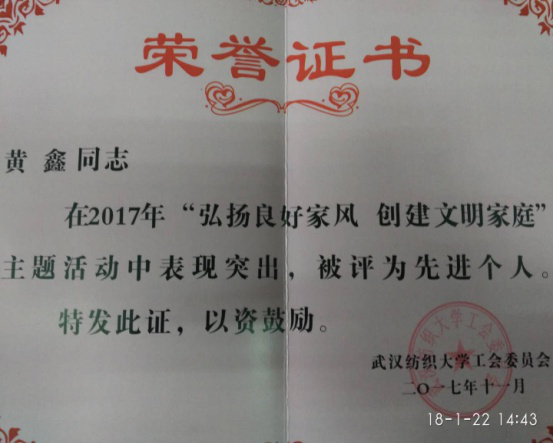 荣誉证书
黄 鑫 同志
在2017年“弘扬良好家风 创建文明家庭”
主题活动中表现突出，被评为先进个人。
特发此证，以资鼓励。
武汉纺织大学工会委员会
二〇一七年十一月
18-1-22 14:43